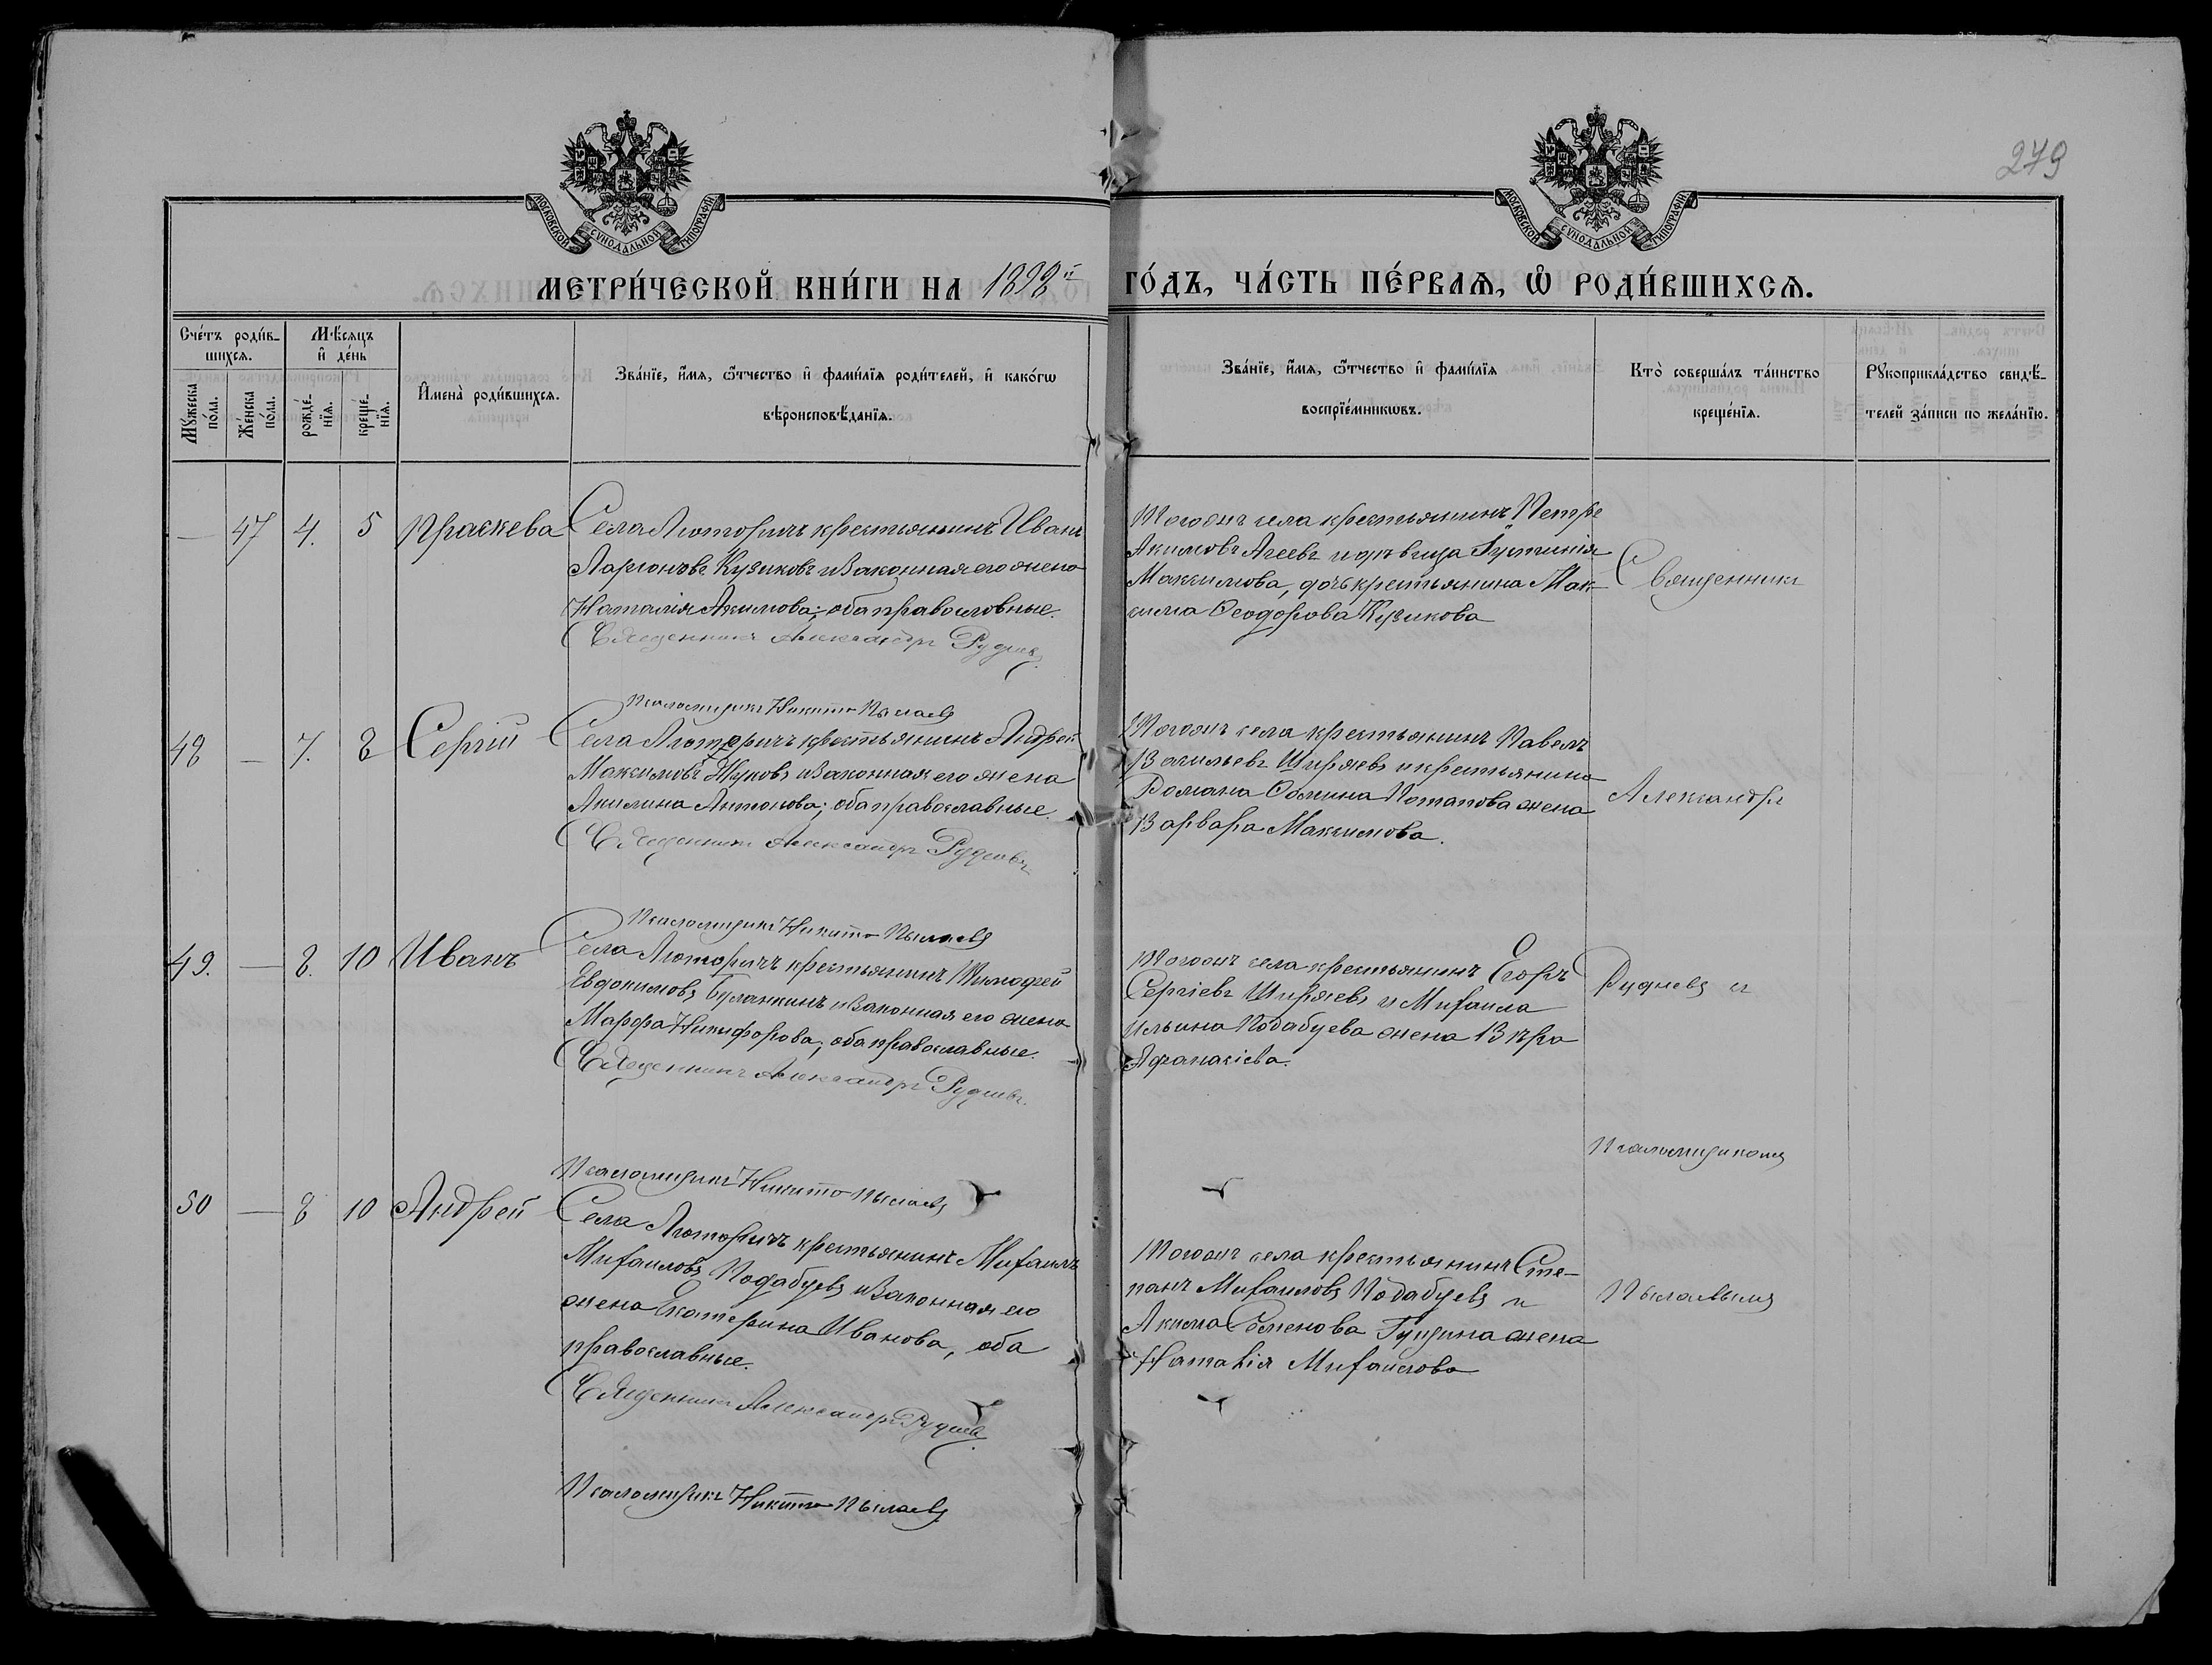 279
МОСКОВСКОЙ СѴНОДАЛЬНОЙ ТИПОГРАФІИ
МОСКОВСКОЙ СѴНОДАЛЬНОЙ ТИПОГРАФІИ
МЕТРИ́ЧЕСКОЙ КНИ́ГИ НА 1898й ГО́ДЪ, ЧА́СТЬ ПЕ́РВАѦ, Ѽ РОДИ́ВШИХСѦ.
Сче́тъ роди́в-
шихсѧ.
Мꙋ́жеска по́ла.
Же́нска по́ла.
Мѣ́сѧцъ
и҆ де́нь
рожде́-нїѧ.
креще́-нїѧ.
И҆мена̀ роди́вшихсѧ.
Зва́нїе, и҆́мѧ, ѻ҆́тчество и҆ фами́лїѧ роди́телей, и҆ како́гѡ
вѣроисповѣ́данїѧ.
Зва́нїе, и҆́мѧ, ѻ҆́тчество и҆ фами́лїѧ
воспрїе́мникѡвъ.
Кто̀ соверша́лъ та́инство
креще́нїѧ.
Рꙋкоприкла́дство свидѣ́-
телей за́писи по жела́нїю.
— 47 4. 5 Праскева
Села Люторичъ крестьянинъ Иванъ
Ларіоновъ Кузиковъ и законная его жена
Наталія Акимова; оба православные.
Священникъ Александръ Рудневъ
Псаломщикъ Никита Пылаевъ
Тогожъ села крестьянинъ Петръ
Акимовъ Агеевъ и дѣвица Іустинія
Максимова, дочь крестьянина Мак-
сима Ѳеодорова Кузикова
Священникъ
48 — 7. 8 Сергій
Села Люторичъ крестьянинъ Андрей
Максимовъ Жуковъ и законная его жена
Акилина Антонова; оба православные.
Священникъ Александръ Рудневъ
Псаломщикъ Никита Пылаевъ
Тогожъ села крестьянинъ Павелъ
Васильевъ Ширяевъ и крестьянина
Романа Ѳомина Потапова жена
Варвара Максимова.
Александръ
49. — 8. 10 Иванъ
Села Люторичъ крестьянинъ Тимофей
Евдокимовъ Буланкинъ и законная его жена
Марфа Никифорова; оба православные.
Священникъ Александръ Рудневъ.
Псаломщикъ Никита Пылаевъ
Тогожъ села крестьянинъ Егоръ
Сергіевъ Ширяевъ и Михаила
Ильина Подабуева жена Вѣра
Афанасіева.
Рудневъ съ
Псаломщикомъ
50 — 8 10 Андрей
Села Люторичъ крестьянинъ Михаилъ
Михаиловъ Подабуевъ и законная его
жена Екатерина Иванова, оба
православные.
Священникъ Александръ Рудневъ
Псаломщикъ Никита Пылаевъ
Тогожъ села крестьянинъ Сте-
панъ Михаиловъ Подабуевъ и
Акима Семенова Гущина жена
Наталія Михаилова
Пылаевымъ